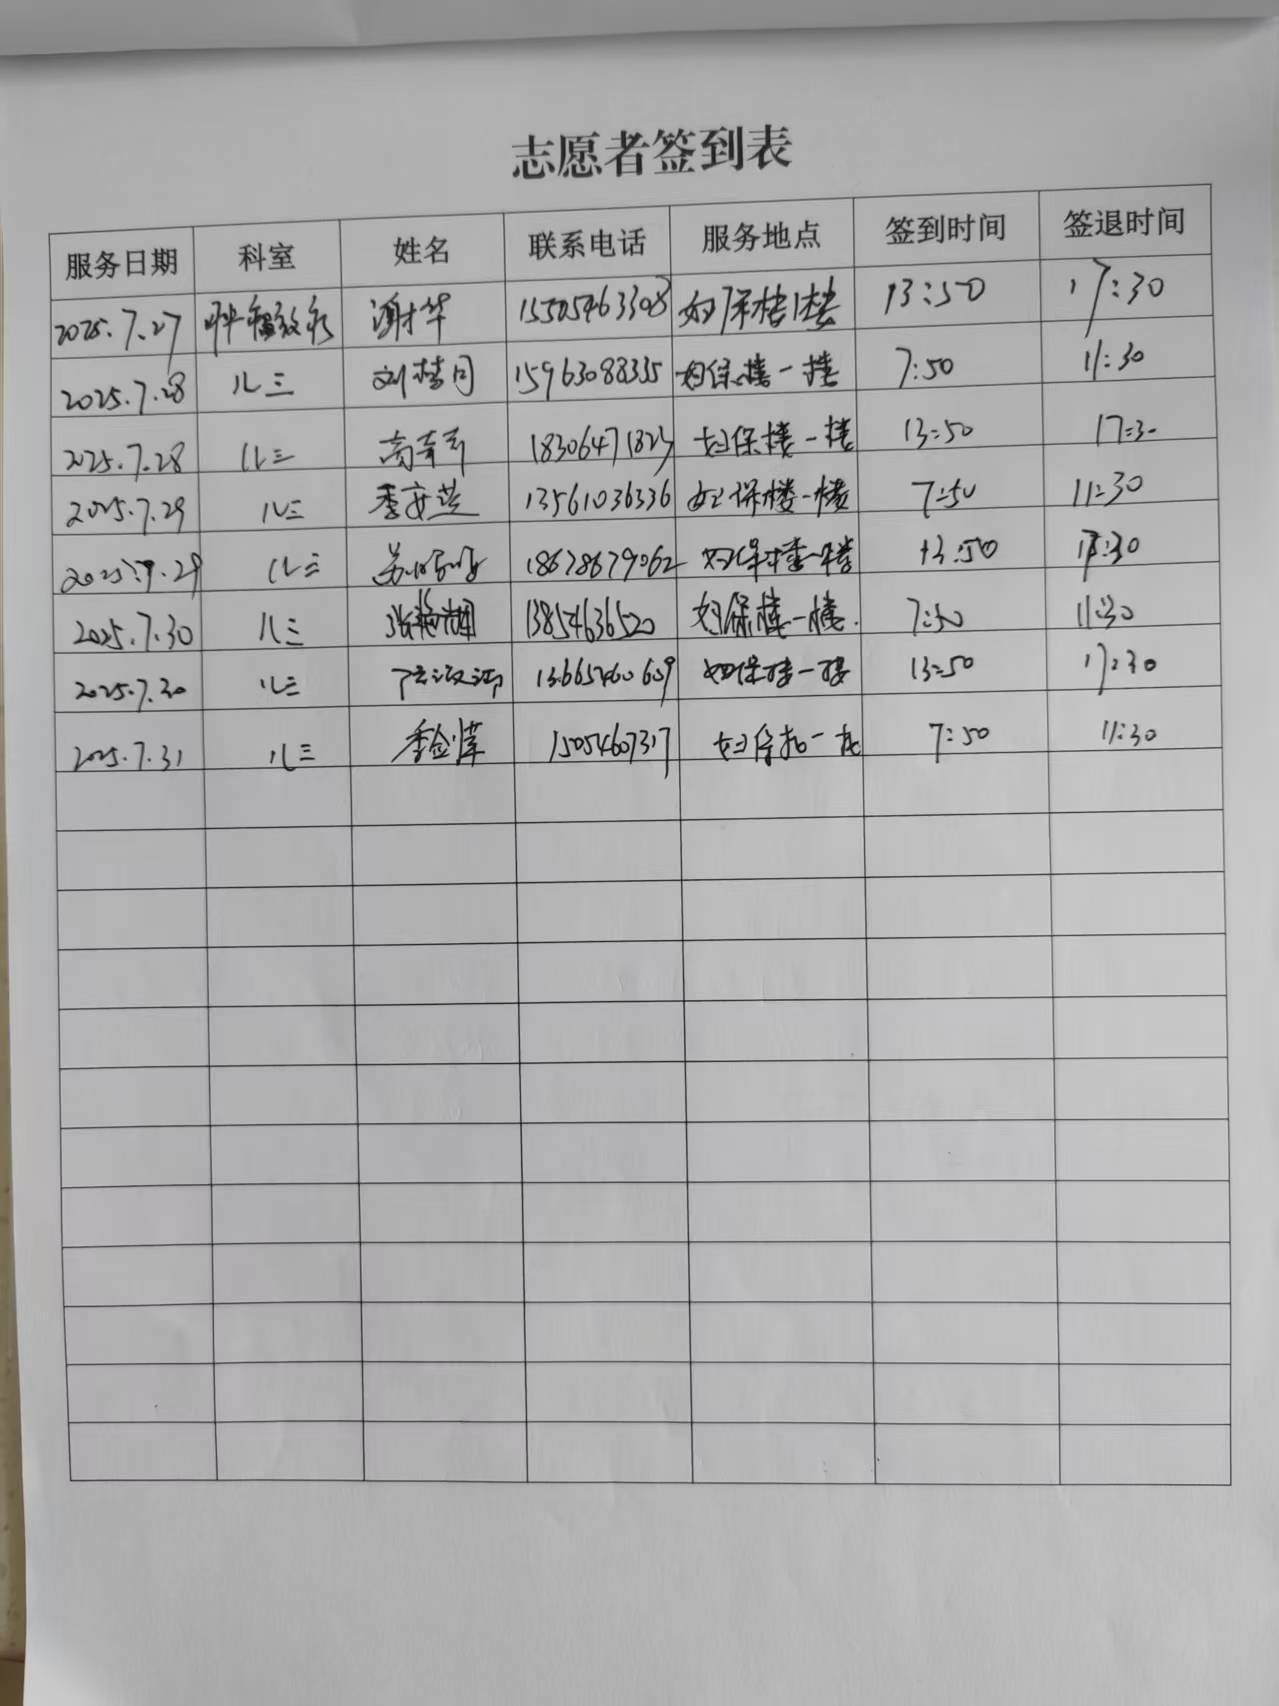 志愿者签到表
服务日期 科室 姓名 联系电话 服务地点 签到时间 签退时间
2025.7.27 谢才华 15505463308 妇保楼1楼 13:50 17:30
2025.7.28 儿三 刘梦月 15963088335 妇保楼一楼 7:50 11:30
2025.7.28 儿三 18306471823 妇保楼一楼 13:50 17:30
2025.7.29 儿三 13561036336 妇保楼一楼 7:50 11:30
2025.7.29 儿三 18678679062 妇保楼一楼 13:50 17:30
2025.7.30 儿三 13854636520 妇保楼一楼. 7:50 11:30
2025.7.30 儿三 13665460609 妇保楼一楼 13:50 17:30
2025.7.31 儿三 15054607317 妇保楼一楼 7:50 11:30